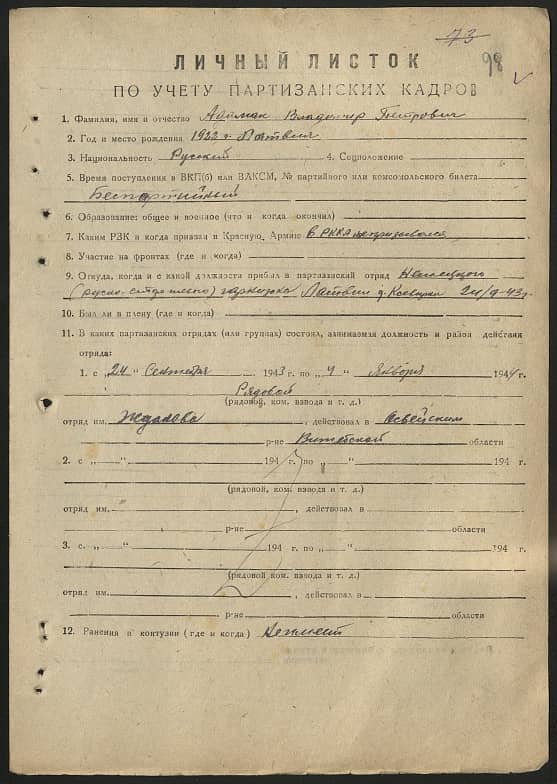 73
98
ЛИЧНЫЙ ЛИСТОК
ПО УЧЕТУ ПАРТИЗАНСКИХ КАДРОВ
1. Фамилия, имя и отчество Владимир Петрович
2. Год и место рождения 1922 г. Латвия
3. Национальность Русский 4. Соцположение
5. Время поступления в ВКП(б) или ВЛКСМ, № партийного или комсомольского билета
Беспартийный
6. Образование: общее и военное (что и когда окончил)
7. Каким РЗК и когда призван в Красную Армию в РККА не призывался
8. Участие на фронтах (где и когда)
9. Откуда, когда и с какой должности прибыл в партизанский отряд Немецкого
гарнизона Латвии д. 24/9-43г.
10. Был ли в плену (где и когда)
11. В каких партизанских отрядах (или группах) состоял, занимаемая должность и район действия
отряда:
1. с „24" Сентября 1943 г. по „4" Января 1944 г.
Рядовой
(рядовой, ком. взвода и т. д.)
отряд им. , действовал в Освейским
р-не Витебской области
2. с „ " 194 г. по „ " 194 г.
(рядовой, ком. взвода и т. д.)
отряд им. , действовал в
р-не области
3. с „ " 194 г. по „ " 194 г.
(рядовой, ком. взвода и т. д.)
отряд им. , действовал в
р-не области
12. Ранения и контузии (где и когда)